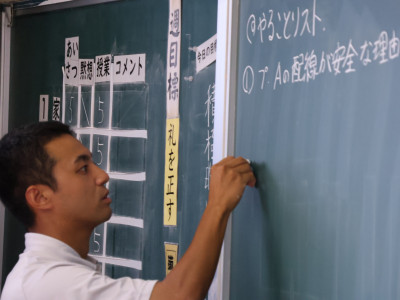 あい
さつ
黙想
授業
コメント
週目標
礼を正す
今日の目標
家
5
5
5
5
@やることリスト.
① プ.Aの配線が安全な理由